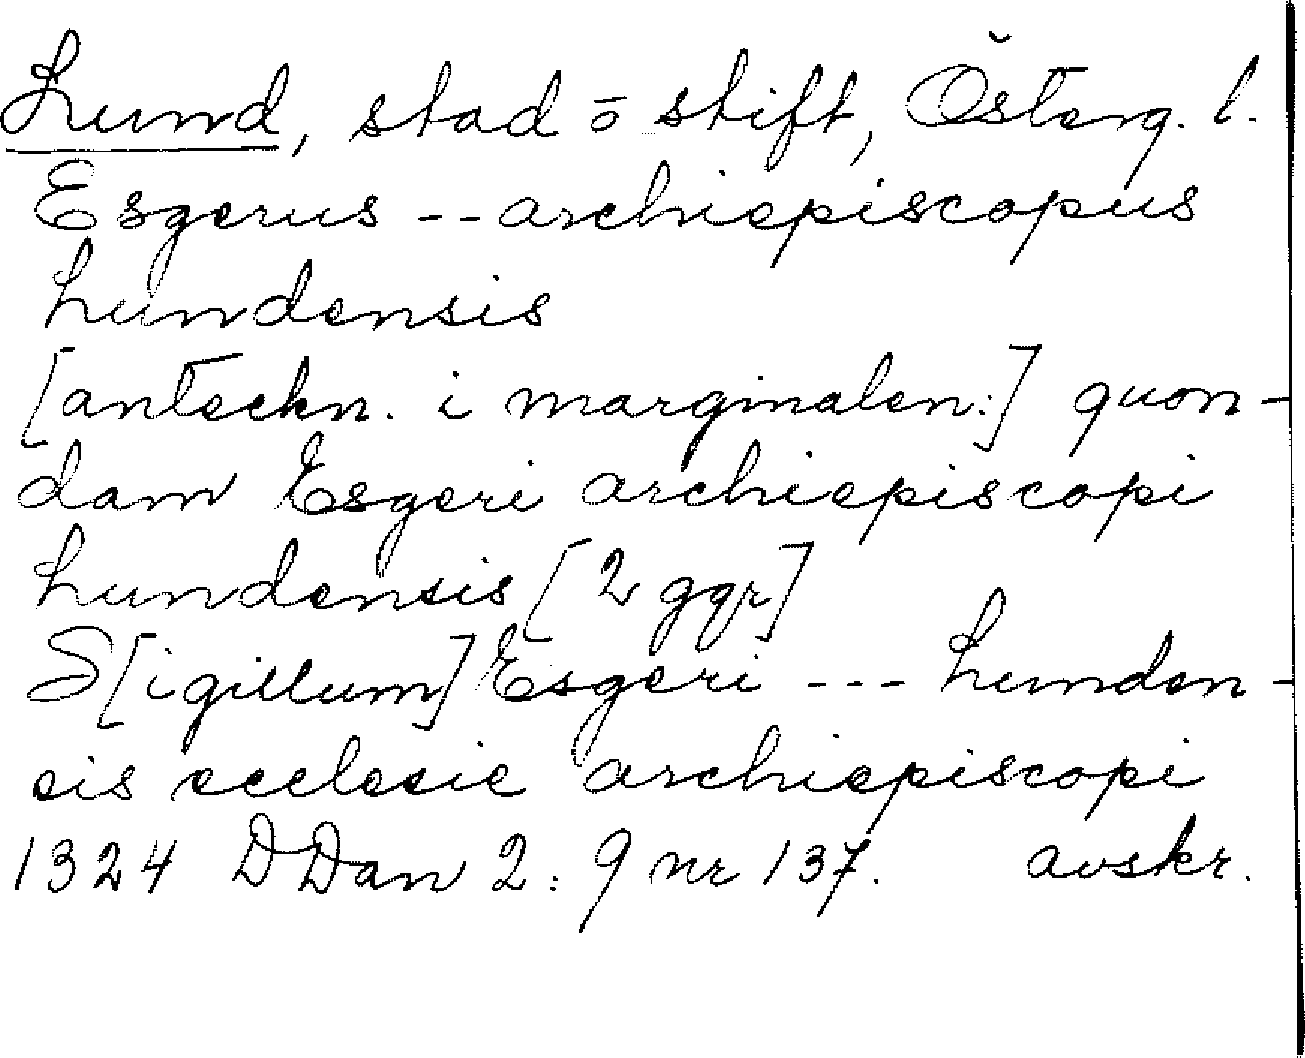 Lund, stad o stift, Österg. l.
Esgerus -- archiepiscopus
Lundensis
[anteckn. i marginalen:] quon-
dam Esgeri archiepiscopi
Lundensis [2 ggr]
S[igillum] Esgeri --- Lunden-
sis ecclesie archiepiscopi
1324 DDan 2: 9 nr 137. avskr.